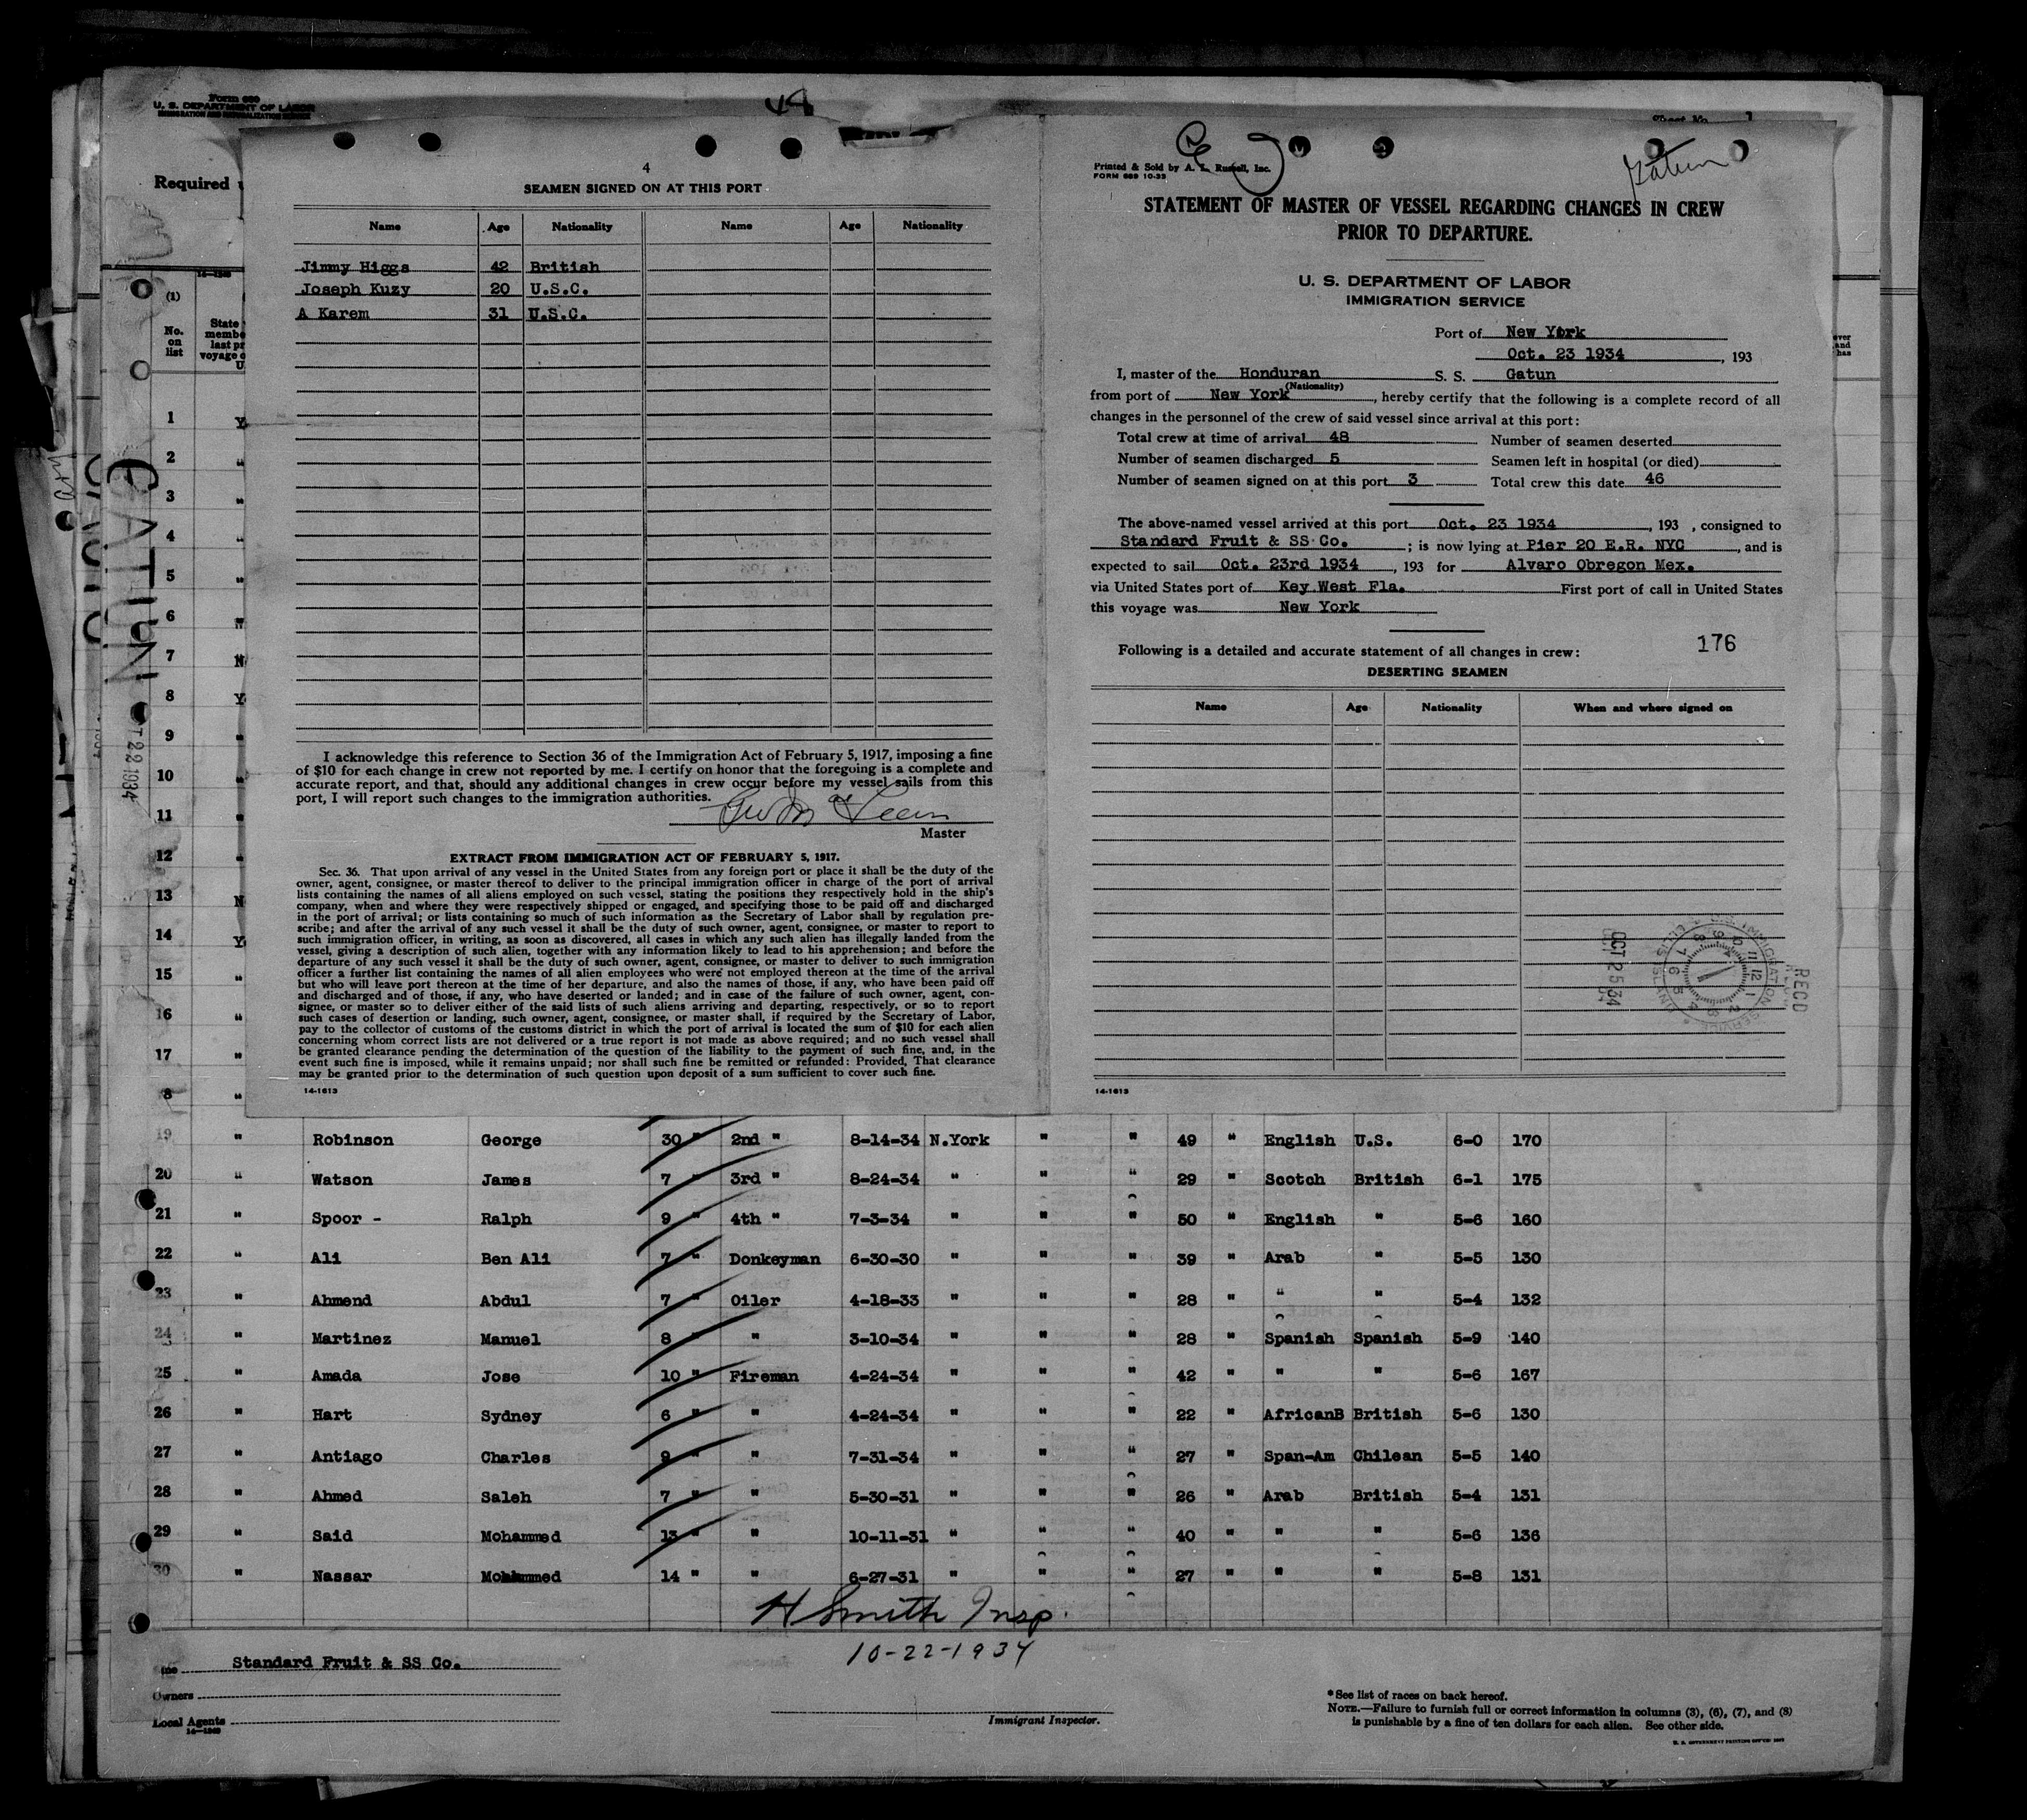 Form 689
U. S. DEPARTMENT OF LABOR
IMMIGRATION AND NATURALIZATION SERVICE
48
Sheet No. 1
Required
14-1240
(1)
No.
on
list
State
membe
last pr
voyage o
U
ever
and
has
1 Y
2 "
3 "
4 "
5 "
6 "
7 N
8 Y
9 "
10 "
11 "
12 "
13 N
14 Y
15 "
16 "
17 "
8 "
GATUN
OCT 22 1934
4
SEAMEN SIGNED ON AT THIS PORT
Name Age Nationality Name Age Nationality
Jimmy Higgs 42 British
Joseph Kuzy 20 U.S.C.
A Karem 31 U.S.C.
I acknowledge this reference to Section 36 of the Immigration Act of February 5, 1917, imposing a fine
of $10 for each change in crew not reported by me. I certify on honor that the foregoing is a complete and
accurate report, and that, should any additional changes in crew occur before my vessel sails from this
port, I will report such changes to the immigration authorities.
Master
EXTRACT FROM IMMIGRATION ACT OF FEBRUARY 5, 1917.
Sec. 36. That upon arrival of any vessel in the United States from any foreign port or place it shall be the duty of the
owner, agent, consignee, or master thereof to deliver to the principal immigration officer in charge of the port of arrival
lists containing the names of all aliens employed on such vessel, stating the positions they respectively hold in the ship's
company, when and where they were respectively shipped or engaged, and specifying those to be paid off and discharged
in the port of arrival; or lists containing so much of such information as the Secretary of Labor shall by regulation pre-
scribe; and after the arrival of any such vessel it shall be the duty of such owner, agent, consignee, or master to report to
such immigration officer, in writing, as soon as discovered, all cases in which any such alien has illegally landed from the
vessel, giving a description of such alien, together with any information likely to lead to his apprehension; and before the
departure of any such vessel it shall be the duty of such owner, agent, consignee, or master to deliver to such immigration
officer a further list containing the names of all alien employees who were not employed thereon at the time of the arrival
but who will leave port thereon at the time of her departure, and also the names of those, if any, who have been paid off
and discharged and of those, if any, who have deserted or landed; and in case of the failure of such owner, agent, con-
signee, or master so to deliver either of the said lists of such aliens arriving and departing, respectively, or so to report
such cases of desertion or landing, such owner, agent, consignee, or master shall, if required by the Secretary of Labor,
pay to the collector of customs of the customs district in which the port of arrival is located the sum of $10 for each alien
concerning whom correct lists are not delivered or a true report is not made as above required; and no such vessel shall
be granted clearance pending the determination of the question of the liability to the payment of such fine, and, in the
event such fine is imposed, while it remains unpaid; nor shall such fine be remitted or refunded: Provided, That clearance
may be granted prior to the determination of such question upon deposit of a sum sufficient to cover such fine.
14-1613
Printed & Sold by A. L. Russell, Inc.
FORM 689 10-33
Gatun
STATEMENT OF MASTER OF VESSEL REGARDING CHANGES IN CREW
PRIOR TO DEPARTURE.
U. S. DEPARTMENT OF LABOR
IMMIGRATION SERVICE
Port of New York
Oct. 23 1934, 193
I, master of the Honduran S. S. Gatun
(Nationality)
from port of New York, hereby certify that the following is a complete record of all
changes in the personnel of the crew of said vessel since arrival at this port:
Total crew at time of arrival 48 Number of seamen deserted
Number of seamen discharged 5 Seamen left in hospital (or died)
Number of seamen signed on at this port 3 Total crew this date 46
The above-named vessel arrived at this port Oct. 23 1934, 193 , consigned to
Standard Fruit & SS Co. ; is now lying at Pier 20 E.R. NYC, and is
expected to sail Oct. 23rd 1934, 193 for Alvaro Obregon Mex.
via United States port of Key West Fla. First port of call in United States
this voyage was New York
176
Following is a detailed and accurate statement of all changes in crew:
DESERTING SEAMEN
Name Age Nationality When and where signed on
OCT 25 34
RECD
14-1613
19 " Robinson George 30 " 2nd " 8-14-34 N.York " " 49 " English U.S. 6-0 170
20 " Watson James 7 " 3rd " 8-24-34 " " " 29 " Scotch British 6-1 175
21 " Spoor - Ralph 9 " 4th " 7-3-34 " " " 50 " English " 5-6 160
22 " Ali Ben Ali 7 " Donkeyman 6-30-30 " " " 39 " Arab " 5-5 130
23 " Ahmend Abdul 7 " Oiler 4-18-33 " " " 28 " " " 5-4 132
24 " Martinez Manuel 8 " " 3-10-34 " " " 28 " Spanish Spanish 5-9 140
25 " Amada Jose 10 " Fireman 4-24-34 " " " 42 " " " 5-6 167
26 " Hart Sydney 6 " " 4-24-34 " " " 22 " AfricanB British 5-6 130
27 " Antiago Charles 9 " " 7-31-34 " " " 27 " Span-Am Chilean 5-5 140
28 " Ahmed Saleh 7 " " 5-30-31 " " " 26 " Arab British 5-4 131
29 " Said Mohammed 13 " " 10-11-31 " " " 40 " " " 5-6 136
30 " Nassar Mohammed 14 " " 6-27-31 " " " 27 " " " 5-8 131
H Smith Insp.
10-22-1934
Line Standard Fruit & SS Co.
Owners
Local Agents
14-1240
Immigrant Inspector.
* See list of races on back hereof.
NOTE.—Failure to furnish full or correct information in columns (3), (6), (7), and (8)
is punishable by a fine of ten dollars for each alien. See other side.